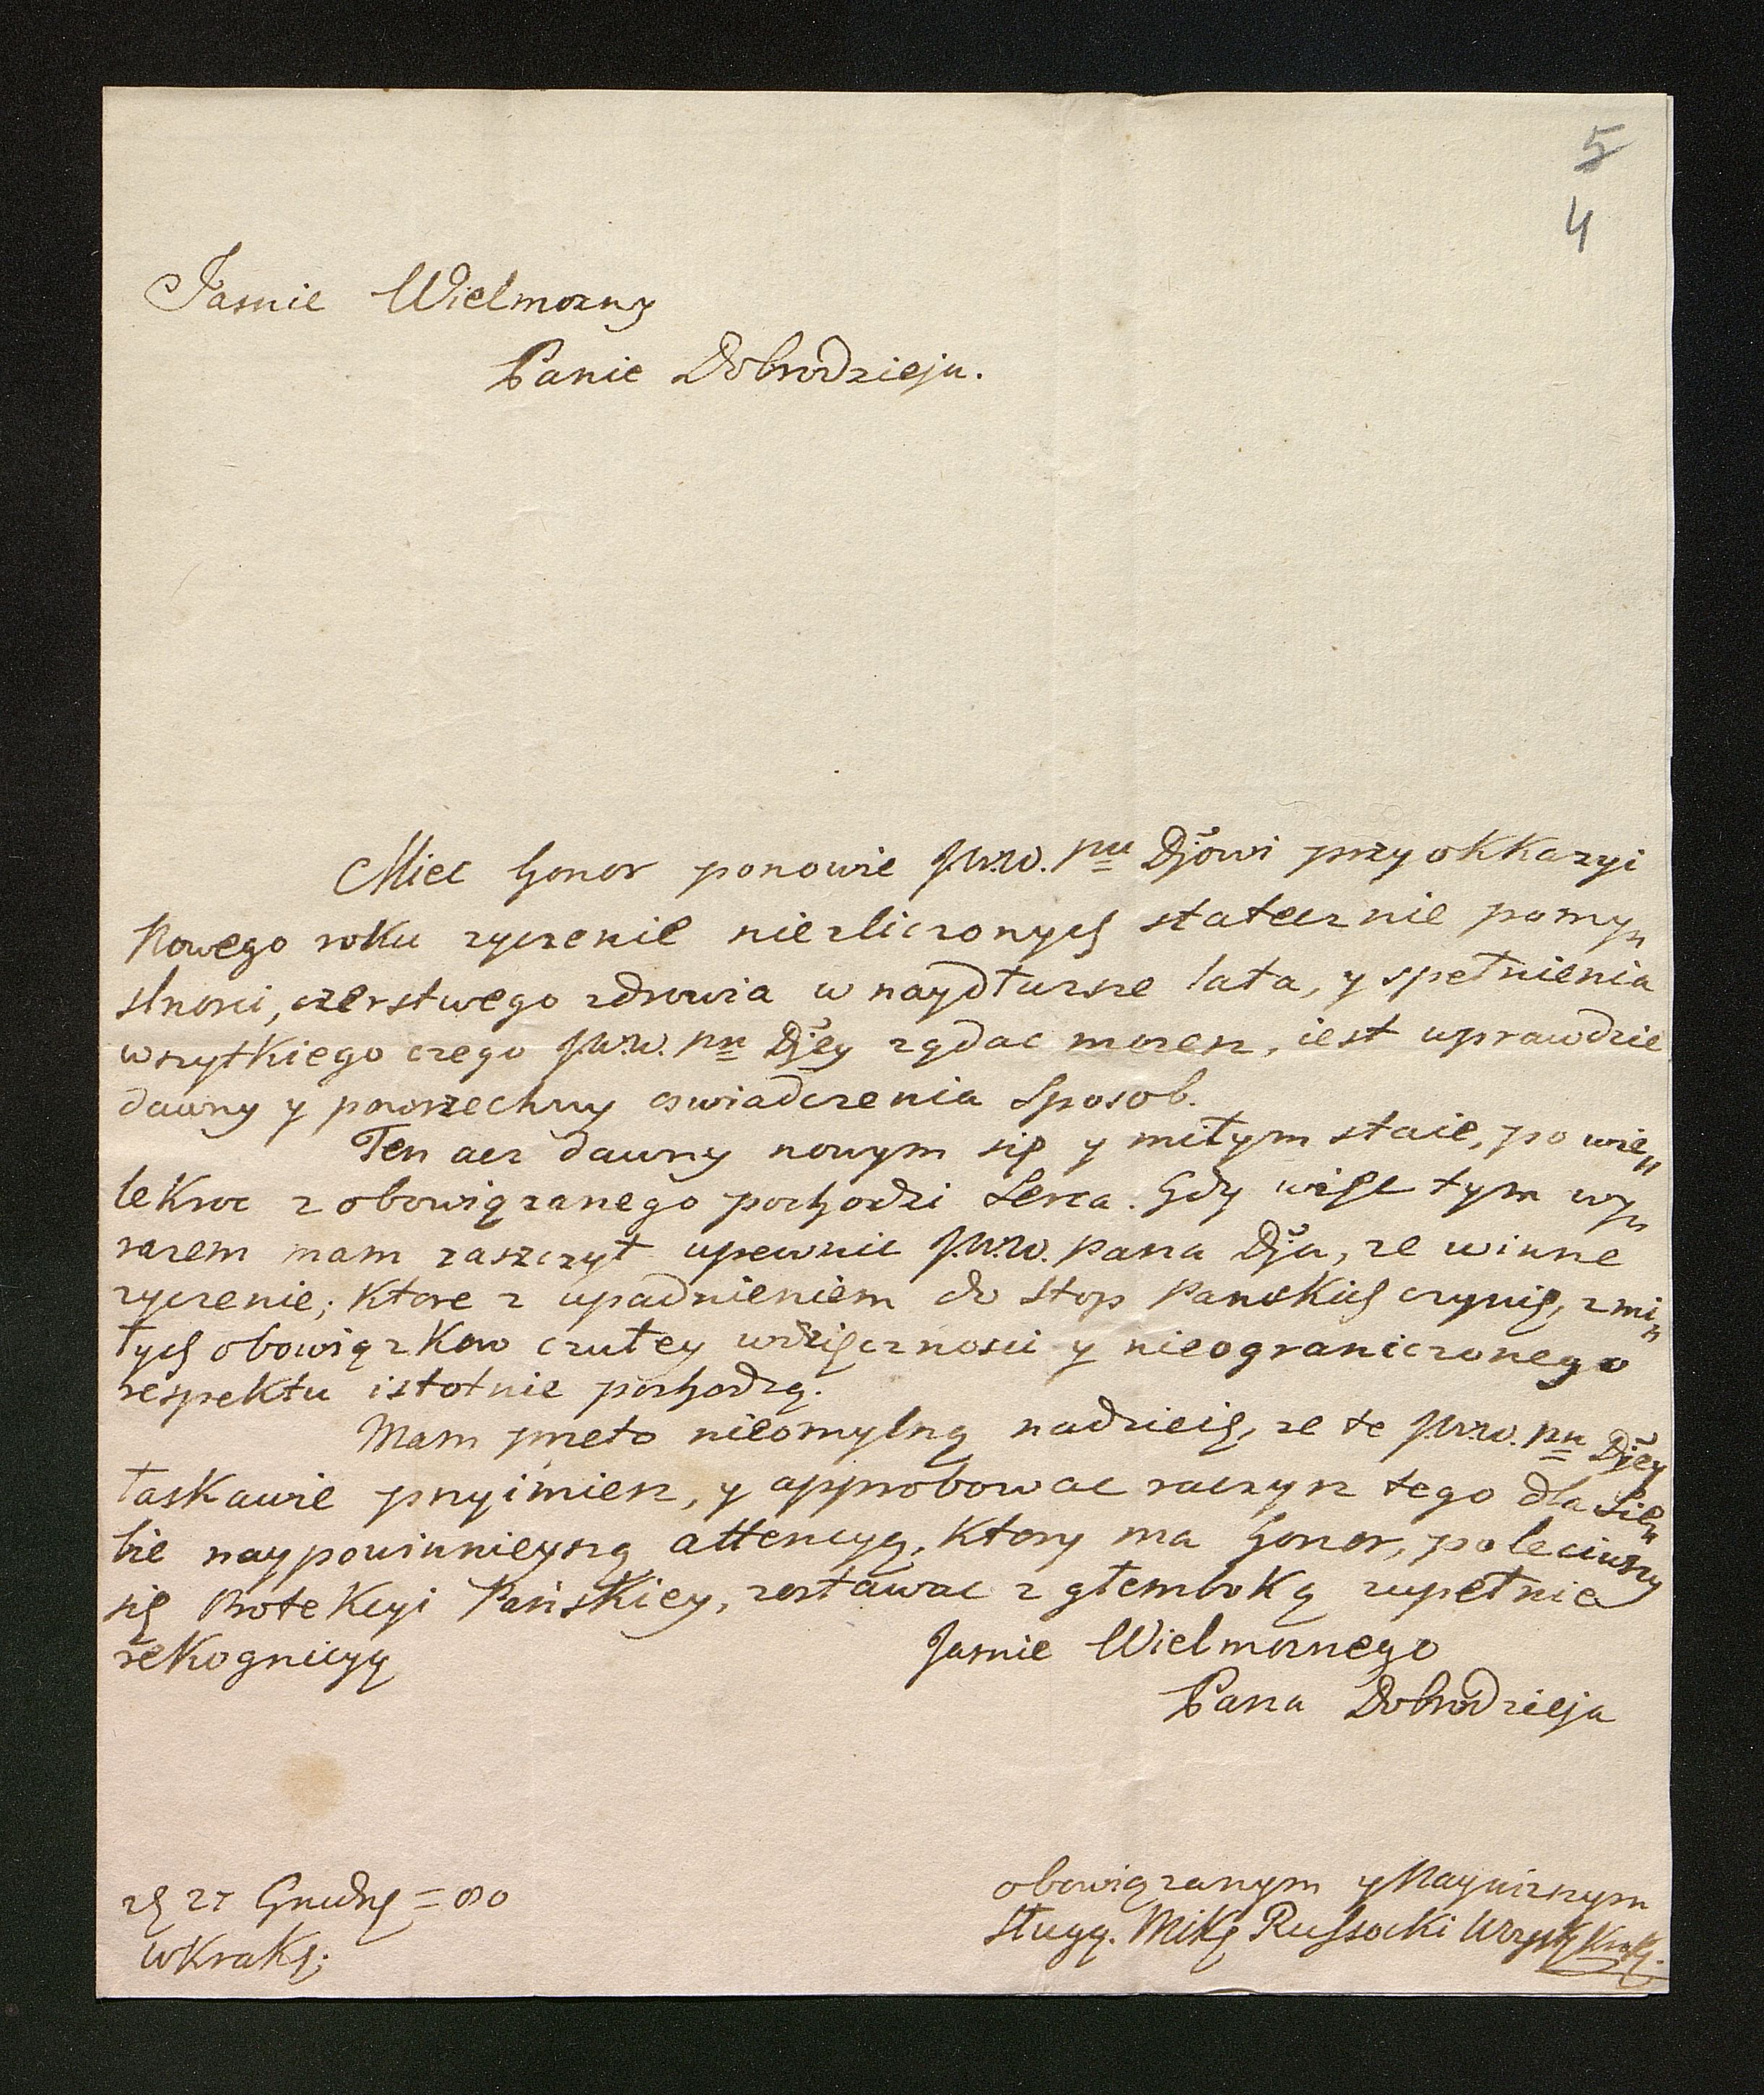 5
4
Jasnie Wielmozny
Panie Dobrodzieju.
Miec honor ponowie J.W.W. Pnu Djowi przy okkazyi
Nowego roku zyczenie niezliczonych statecznie pomy„
slnosci, czerstwego zdrowia w naydłuzsze lata, y spełnienia
wszytkiego czego J.W.W. Pn Djey ządac mozesz, iest wprawdzie
dawny y powszechny oswiadczenia sposob.
Ten acz dawny nowym się y miłym staie, po wie„
lekroc z obowiązanego pochodzi serca. Gdy więc tym wy„
razem mam zaszczyt upewnic J.W.W. Pana Dja, ze winne
zyczenie; ktore z upadnieniem do stop Panskich czynię, z mi„
łych obowiązkow czułey wdzięcznosci y nieograniczonego
respektu istotnie pochodzą.
Mam przeto nieomylną nadzieię, ze te J.W.W. Pn Djey
łaskawie przyimiesz, y approbowac raczysz tego dla Sie„
bie naypowinnieyszą attencyą, ktory ma honor, poleciwszy
się Protekcyi Pańskiey, zostawac z głemboką zupełnie
rekognicyą
Jasnie Wielmoznego
Pana Dobrodzieja
27 Grudnę = 80
w Krakę;
obowiązanym y Naynizszym
sługą. Mikę Russocki